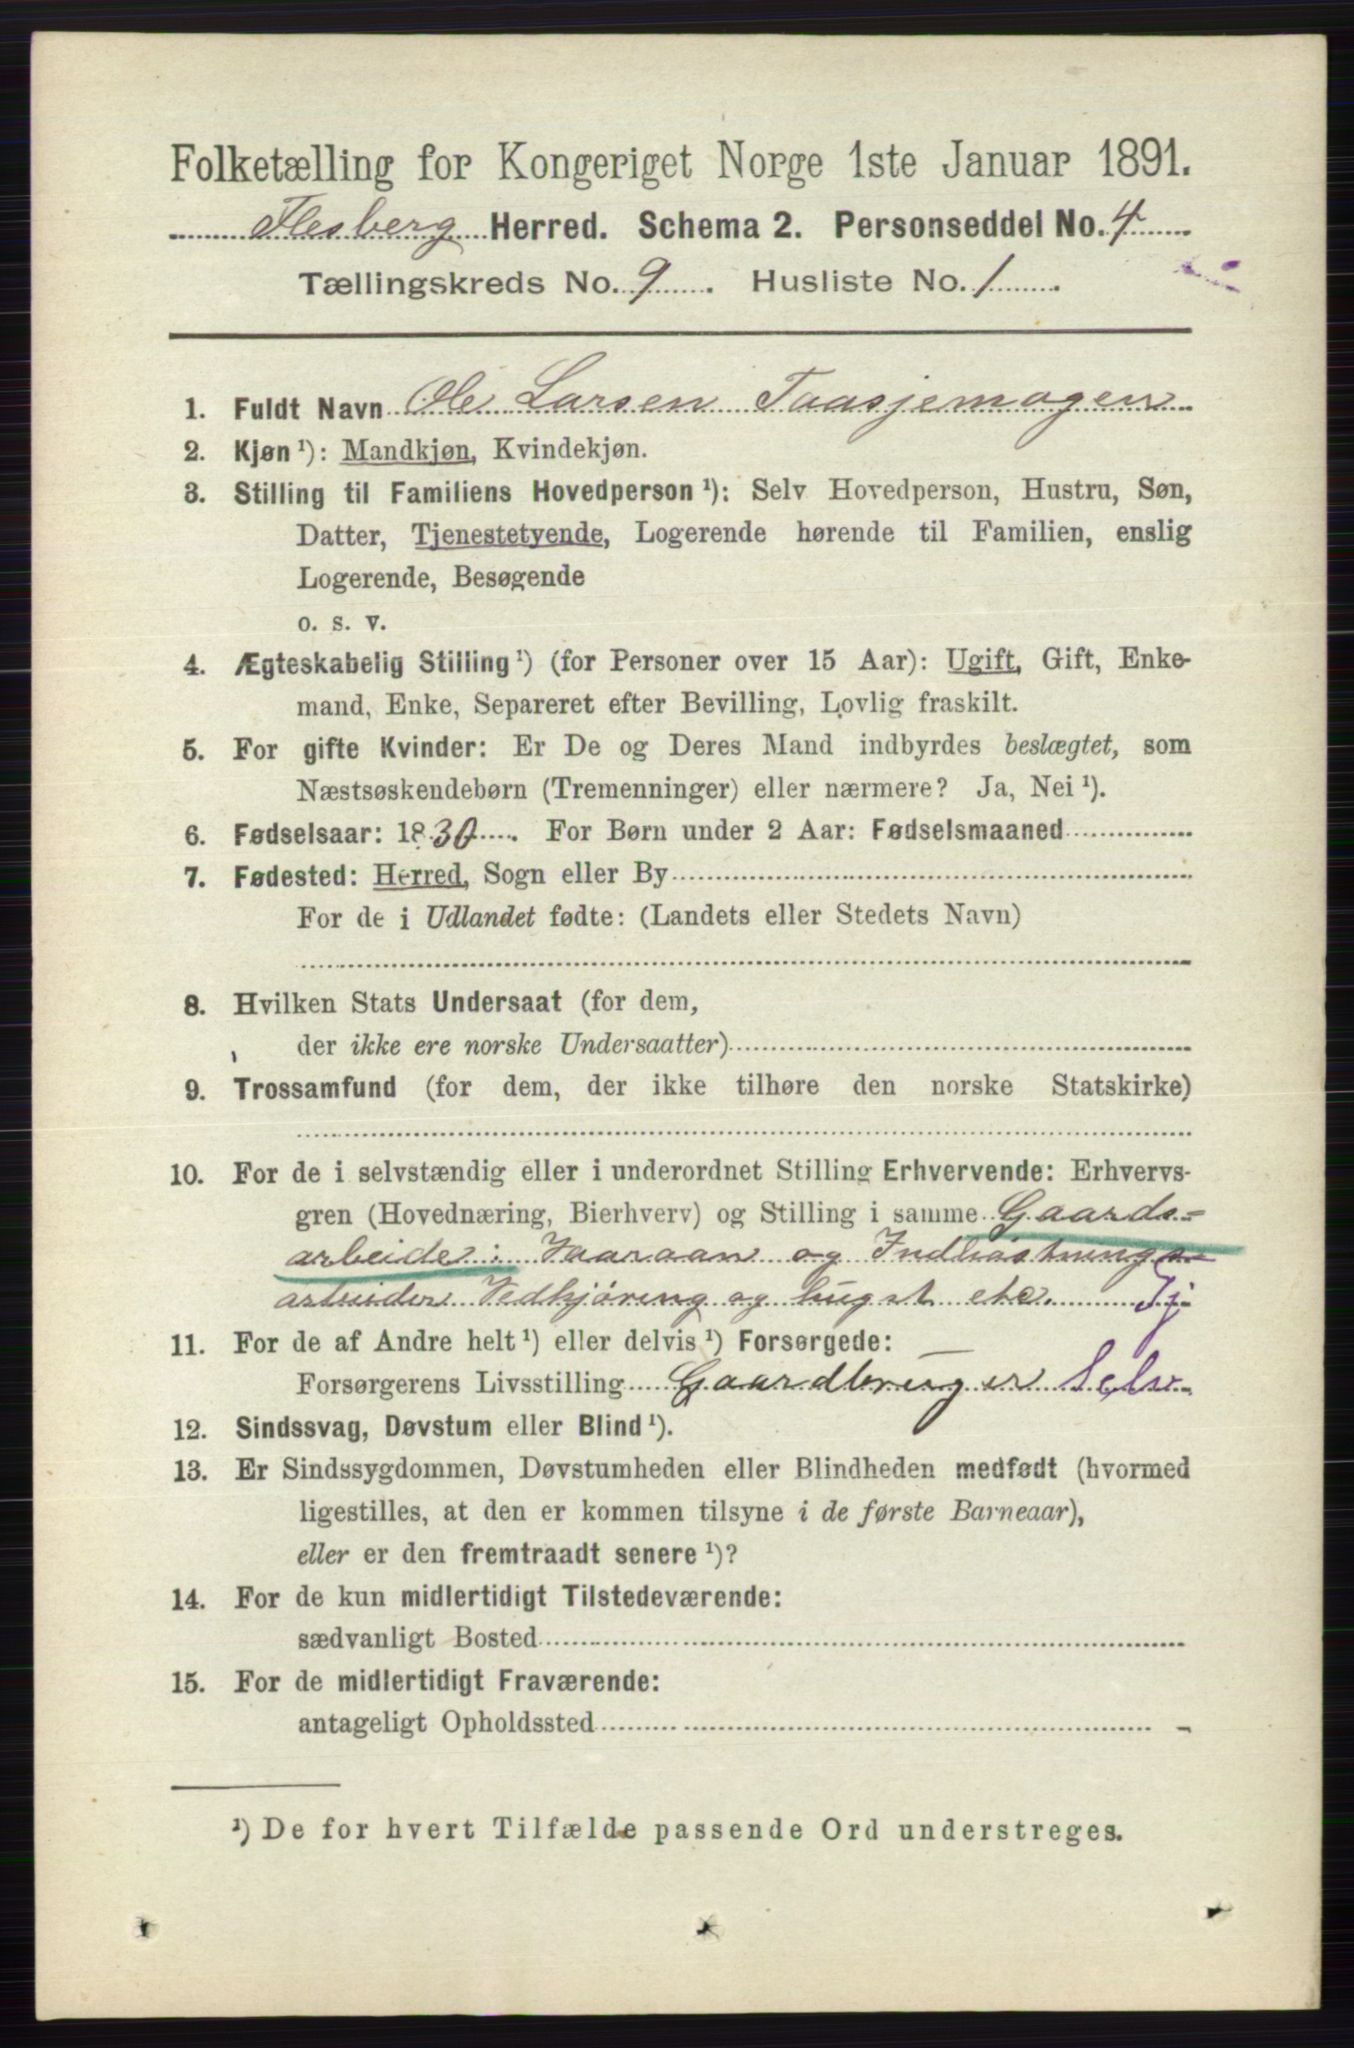 Folketælling for Kongeriget Norge 1ste Januar 1891.
Flesberg Herred. Schema 2. Personseddel No. 4
Tællingskreds No. 9. Husliste No. 1.
1. Fuldt Navn Ole Larsen Taasjemogen
2. Kjøn ¹): Mandkjøn, Kvindekjøn.
3. Stilling til Familiens Hovedperson ¹): Selv Hovedperson, Hustru, Søn,
Datter, Tjenestetyende, Logerende hørende til Familien, enslig
Logerende, Besøgende
o. s. v.
4. Ægteskabelig Stilling ¹) (for Personer over 15 Aar): Ugift, Gift, Enke-
mand, Enke, Separeret efter Bevilling, Lovlig fraskilt.
5. For gifte Kvinder: Er De og Deres Mand indbyrdes beslægtet, som
Næstsøskendebørn (Tremenninger) eller nærmere? Ja, Nei ¹).
6. Fødselsaar: 1830. For Børn under 2 Aar: Fødselsmaaned
7. Fødested: Herred, Sogn eller By
For de i Udlandet fødte: (Landets eller Stedets Navn)
8. Hvilken Stats Undersaat (for dem,
der ikke ere norske Undersaatter)
9. Trossamfund (for dem, der ikke tilhøre den norske Statskirke)
10. For de i selvstændig eller i underordnet Stilling Erhvervende: Erhvervs-
gren (Hovednæring, Bierhverv) og Stilling i samme Gaards-
arbeide: Vaaraan og Indhøstnings
arbeider Vedkjøring og hugst etc. Tj
11. For de af Andre helt ¹) eller delvis ¹) Forsørgede:
Forsørgerens Livsstilling Gaardbruger Selv
12. Sindssvag, Døvstum eller Blind ¹).
13. Er Sindssygdommen, Døvstumheden eller Blindheden medfødt (hvormed
ligestilles, at den er kommen tilsyne i de første Barneaar),
eller er den fremtraadt senere ¹)?
14. For de kun midlertidigt Tilstedeværende:
sædvanligt Bosted
15. For de midlertidigt Fraværende:
antageligt Opholdssted
¹) De for hvert Tilfælde passende Ord understreges.